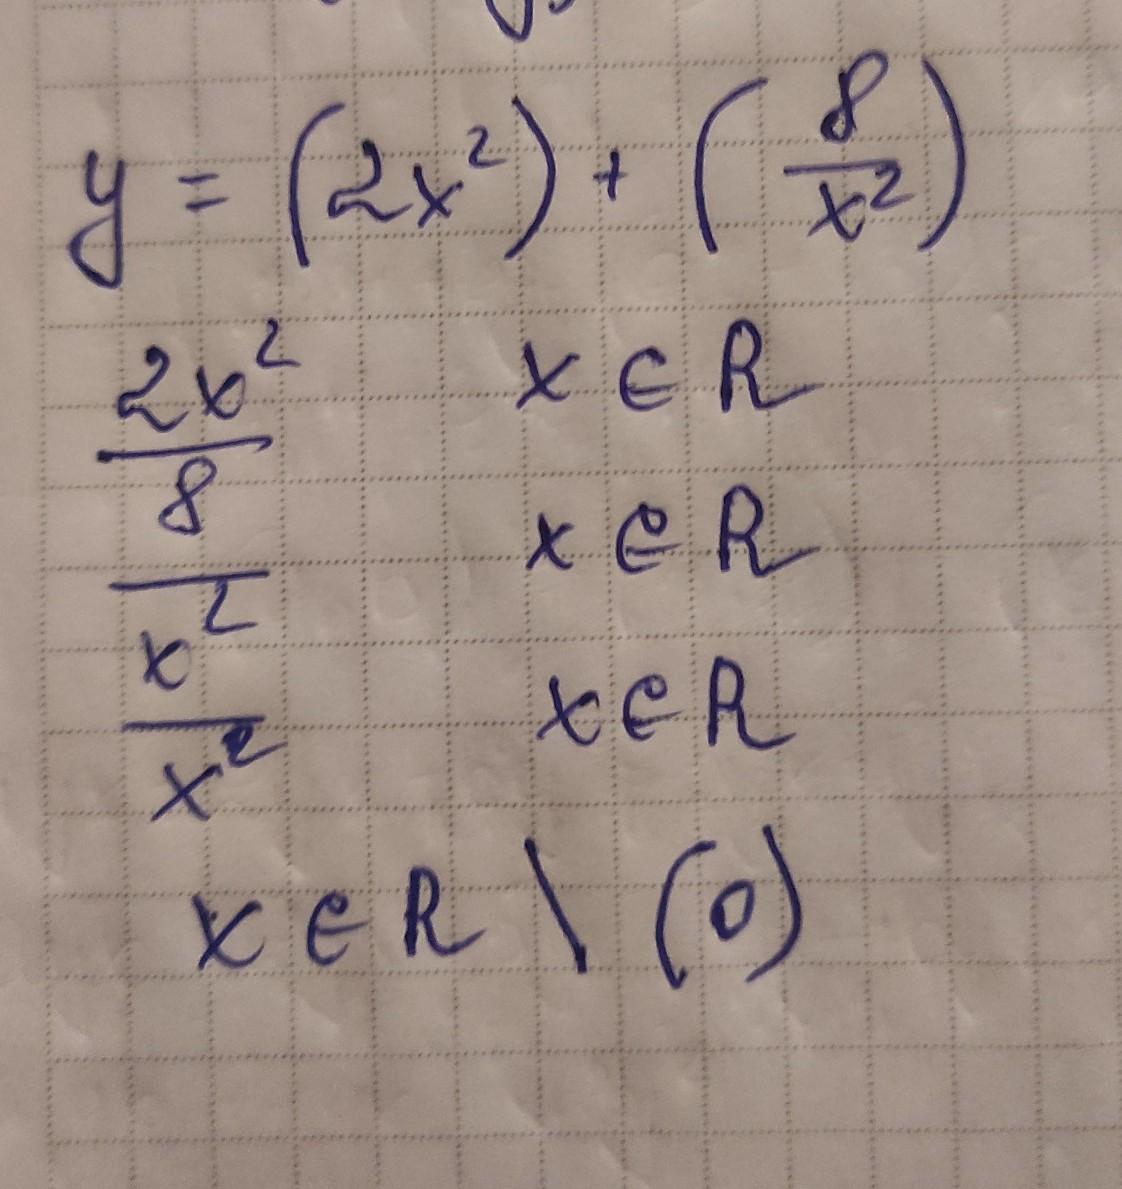 y = (2x²) + (8/x²)
2x² x ∈ R
8 x ∈ R
x² x ∈ R
x²
x ∈ R \ (0)